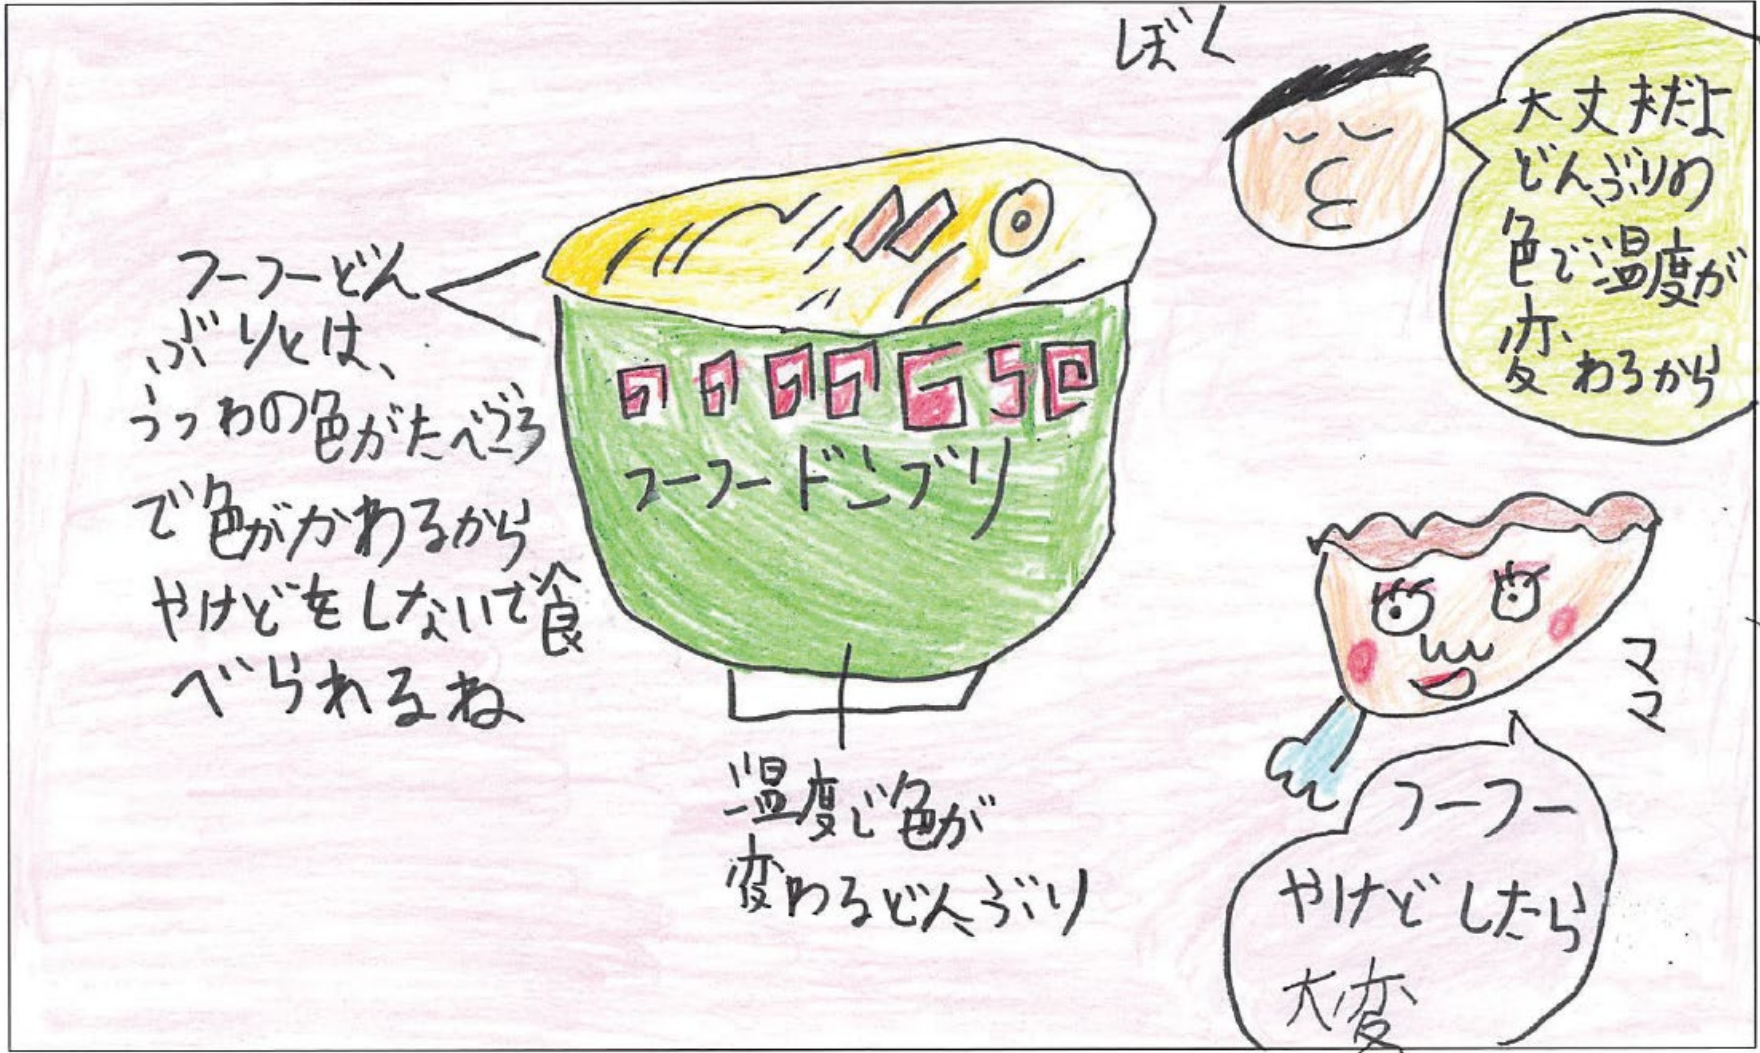 ぼく
大丈夫だよ
どんぶりの
色で温度が
変わるから
フーフーどん
ぶりとは、
うつわの色がたべごろ
で色がかわるから
やけどをしないで食
べられるね
フーフードンブリ
温度で色が
変わるどんぶり
ママ
フーフー
やけどしたら
大変